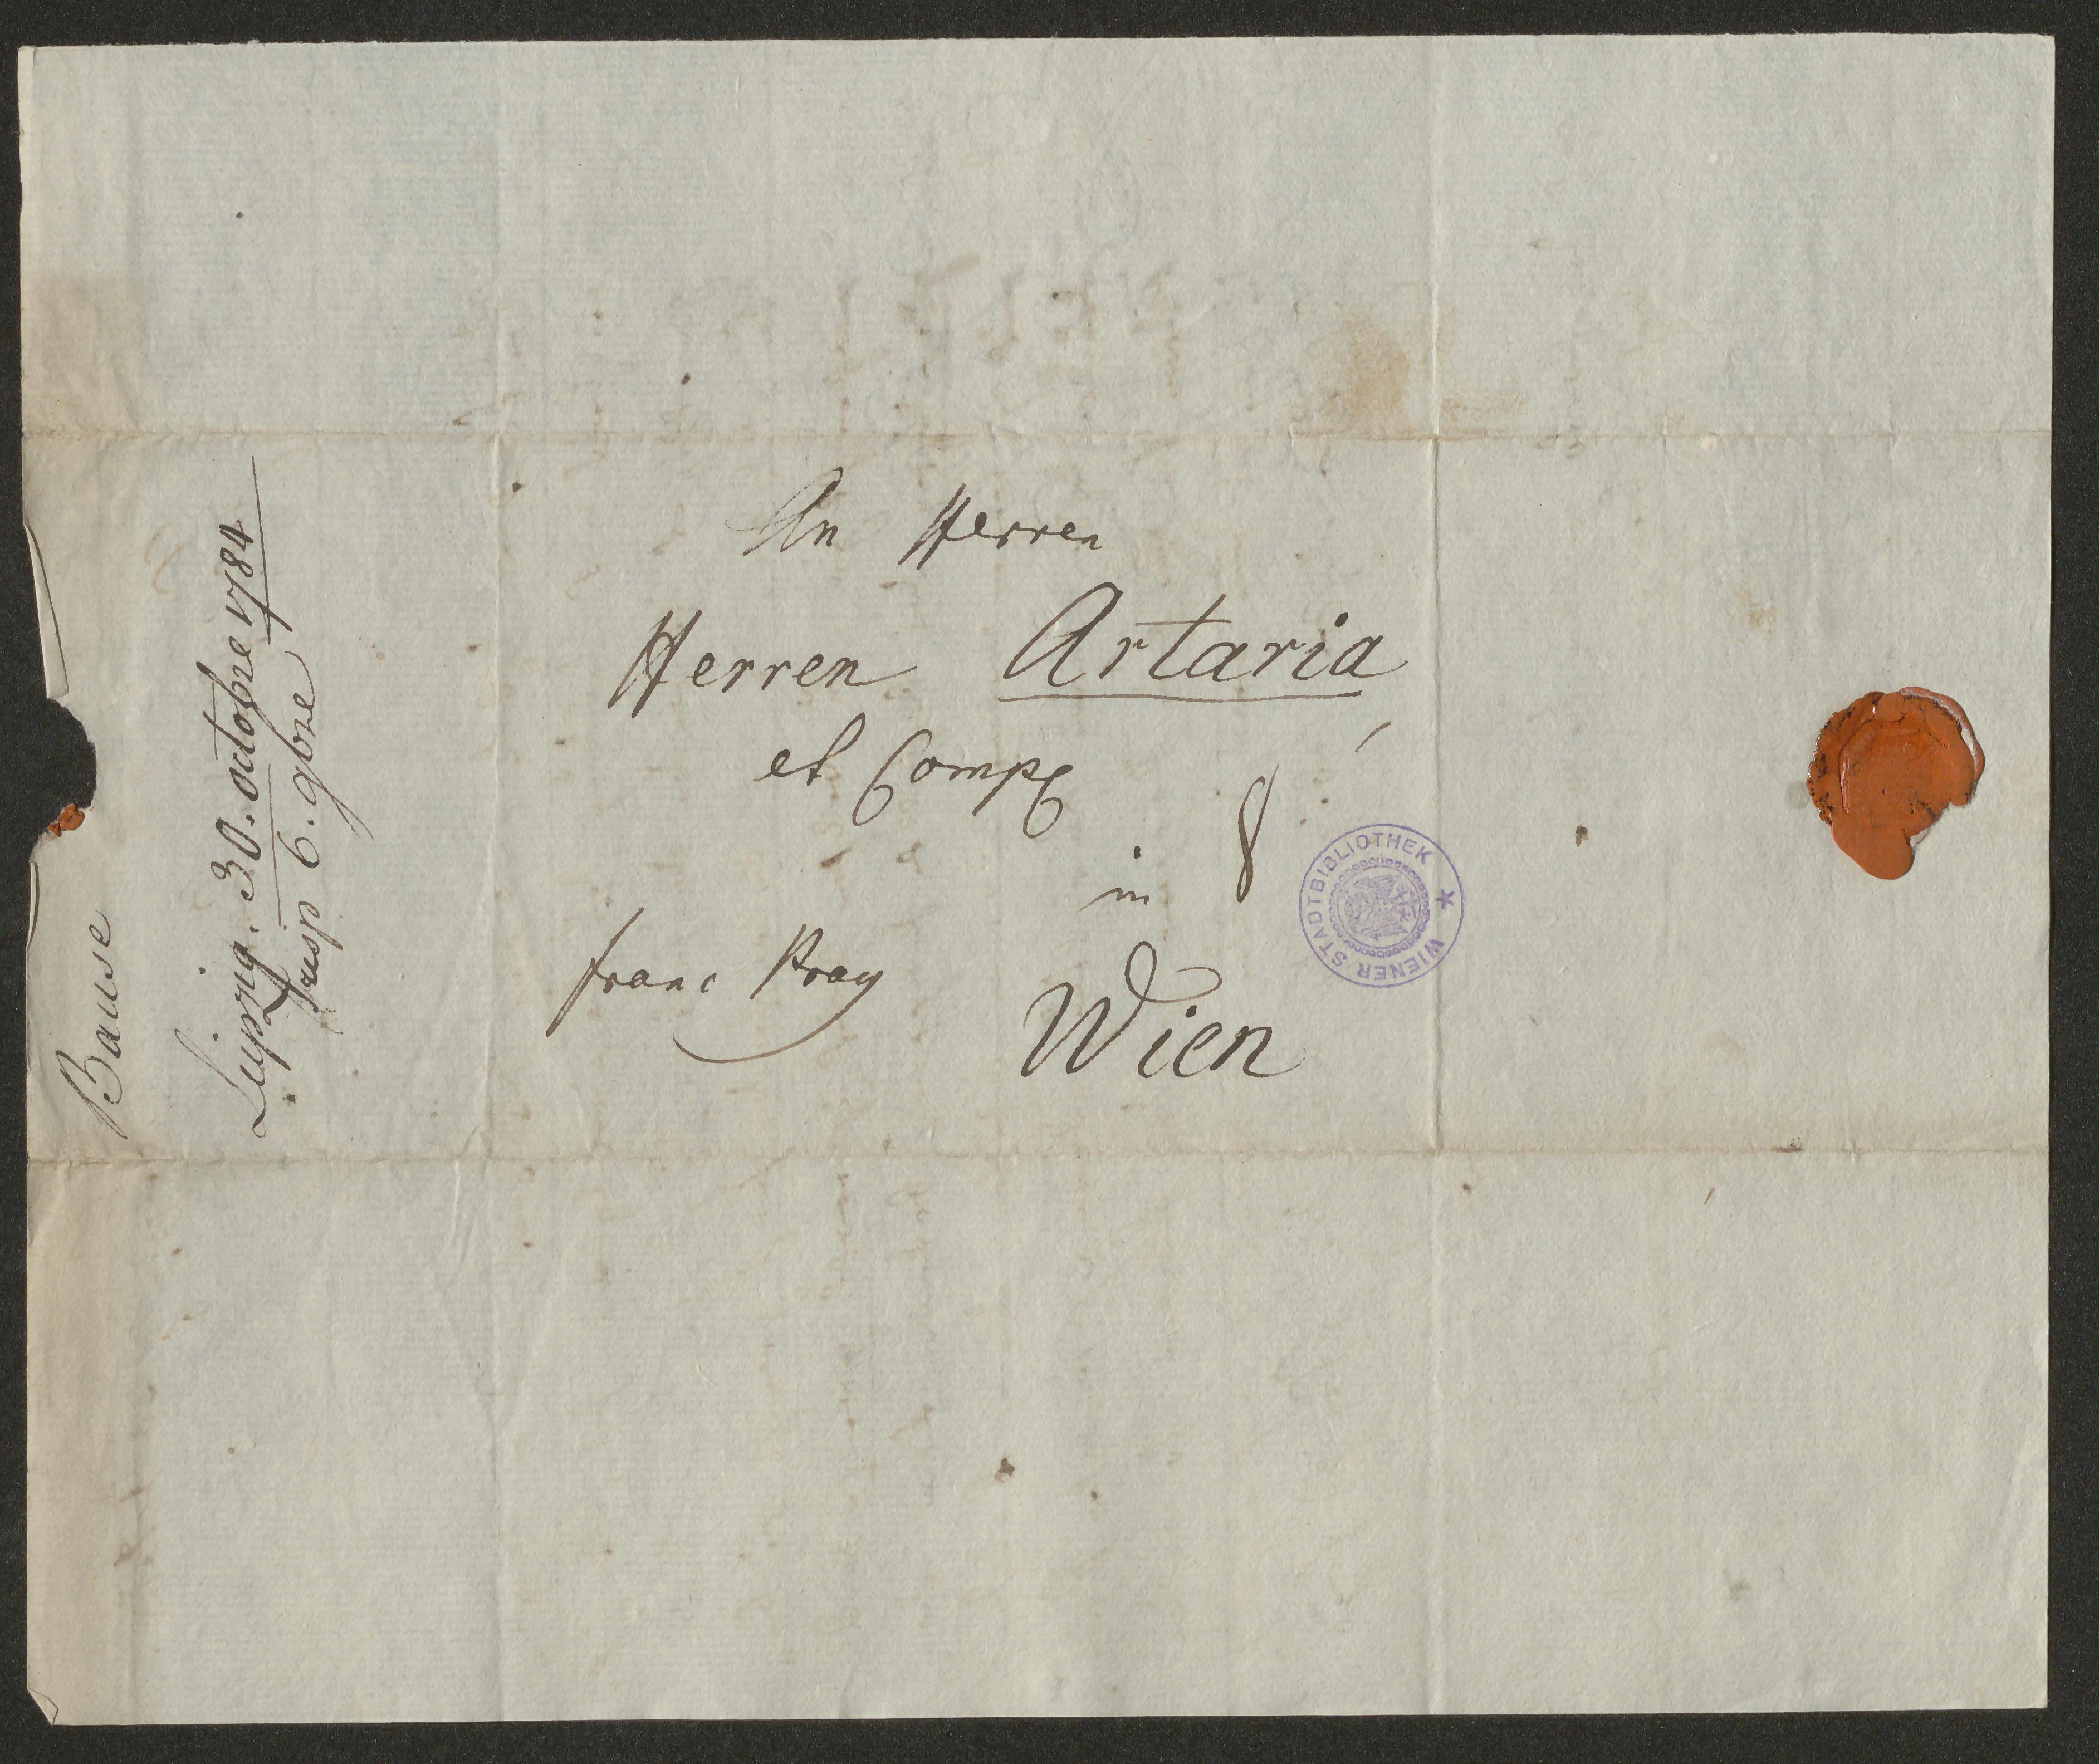 An Herren
Herren Artaria
et Comp
in
8
franc Prag
Wien
Bause
Leipzig. 30. octobre 1784
risp 6. 9bre
WIENER STADTBIBLIOTHEK